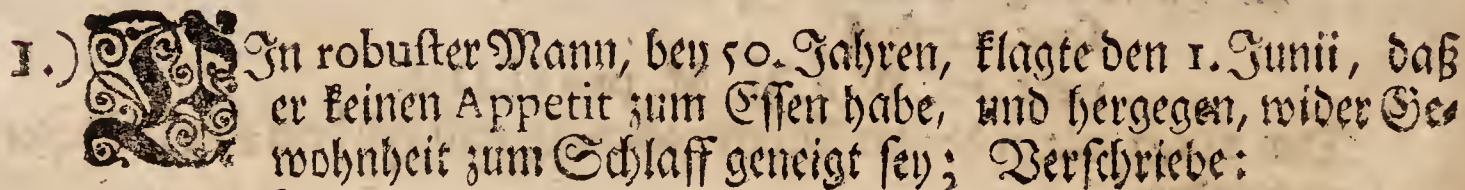 1.) EIn robuster Mann, bey 50. Jahren, klagte den 1. Junii, daß
er keinen Appetit zum Essen habe, und hergegen, wider Ge-
wohnheit zum Schlaff geneigt sey; Verschriebe: